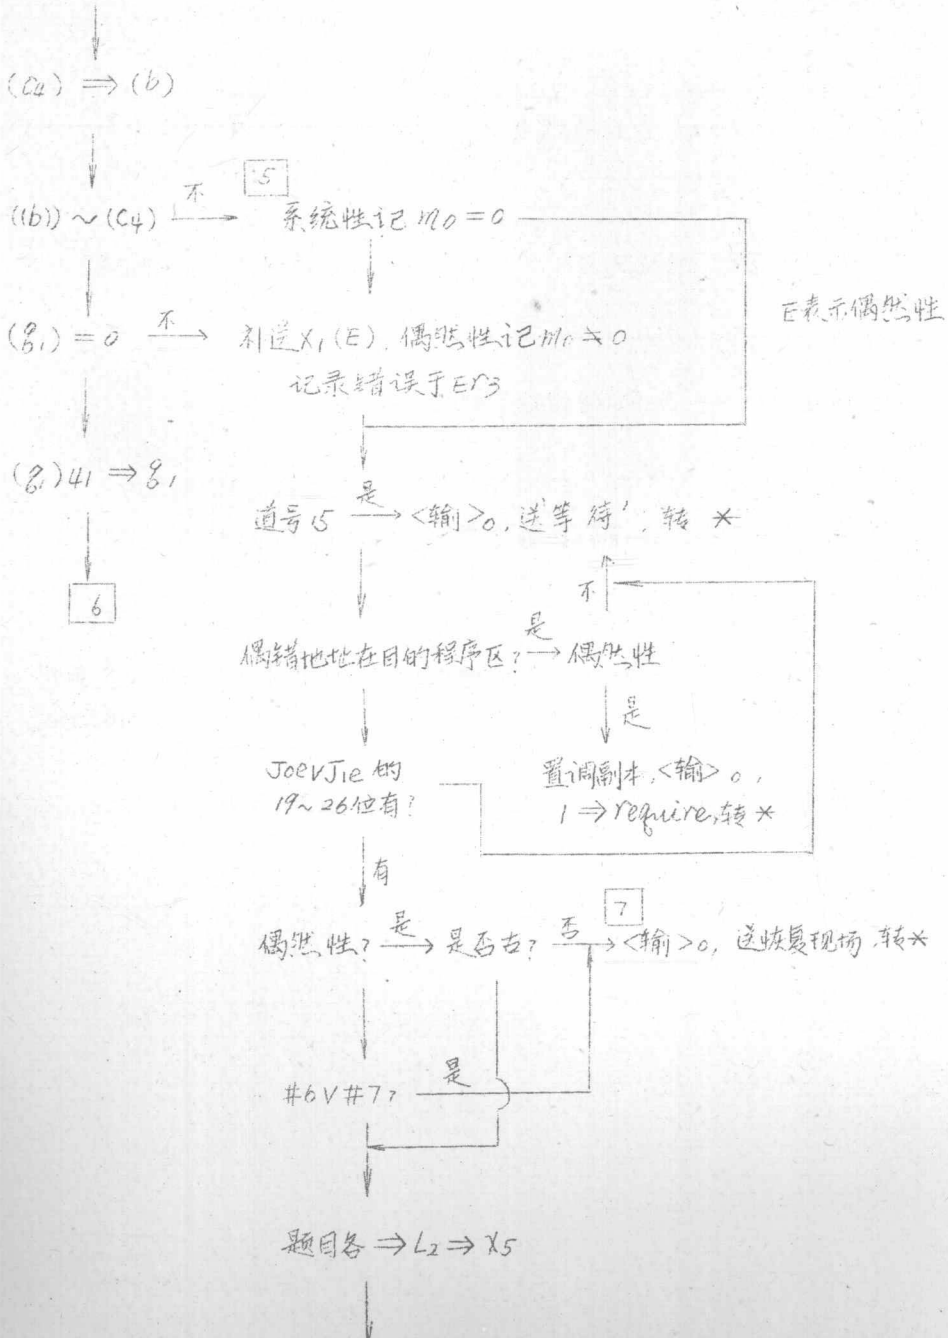 (C4) ⇒ (b)
不
5
((b)) ~ (C4)
系统性记 m0 = 0
E表示偶然性
不
(g1) = 0
补送X1(E). 偶然性记m0 ≠ 0
记录错误于Er3
(g1)41 ⇒ g1
是
道号15
<输>0, 送'等待', 转 *
6
不
是
偶错地址在目的程序区?
偶然性
是
J0e∨J1e 的
19~26位有?
置调副本, <输>0,
1 ⇒ require, 转 *
有
7
偶然性?
是
是否古?
否
<输>0, 送恢复现场, 转*
是
#6∨#7?
题目名 ⇒ L2 ⇒ X5